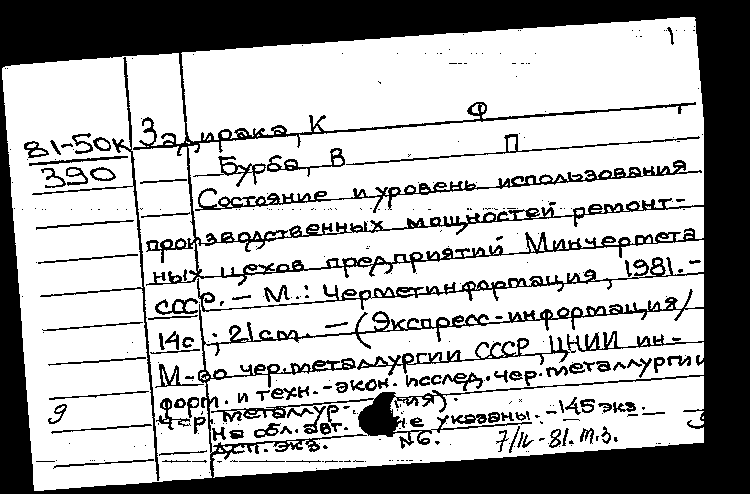 1
81-50к Задирака, К Ф
390 Бурба, В П
Состояние и уровень использования
производственных мощностей ремонт-
ных цехов предприятий Минчермета
СССР. — М.: Черметинформация, 1981. –
14с ; 21см. — (Экспресс-информация/
М-во чер. металлургии СССР, ЦНИИ ин-
форм. и техн.-экон. исслед. чер. металлургии
9 Чер. металлур- гия).
На обл. авт. не указаны. -145 экз.
Дсп. экз. №6. 7/IV-81. т.3.